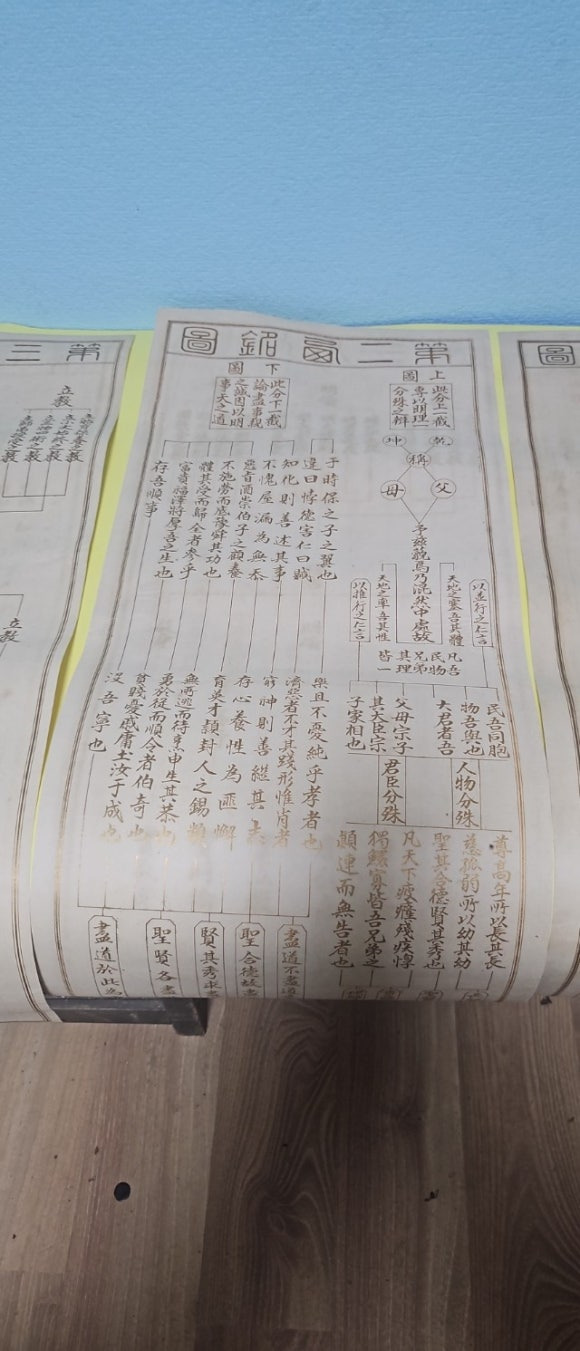 第二西銘圖
上圖
此分上一截
專以明理一
分殊之辨
乾
坤
稱
父
母
予茲藐焉乃混然中處故
天地之塞吾其體
天地之帥吾其性
以並行之仁言
以推行之仁言
凡吾
民物
兄弟
其理
皆一
民吾同胞
物吾與也
大君者吾
父母宗子
其大臣宗
子家相也
人物分殊
君臣分殊
尊高年所以長其長
慈孤弱所以幼其幼
聖其合德賢其秀也
凡天下疲癃殘疾惸
獨鰥寡皆吾兄弟之
顛連而無告者也
下圖
此分下一截
論盡事親
之誠因以明
事天之道
于時保之子之翼也
違曰悖德害仁曰賊
知化則善述其事
不愧屋漏為無忝
惡旨酒崇伯子之顧養
不施勞而底豫舜其功也
體其受而歸全者參乎
富貴福澤將厚吾之生也
存吾順事
樂且不憂純乎孝者也
濟惡者不才其踐形惟肖者
窮神則善繼其志
存心養性為匪懈
育英才潁封人之錫類
無所逃而待烹申生其恭也
勇於從而順令者伯奇也
貧賤憂戚庸玉汝于成也
沒吾寧也
盡道不盡道
聖合德故盡
賢其秀求盡
聖賢各盡
盡道於此為
第三
立教
立教
圖